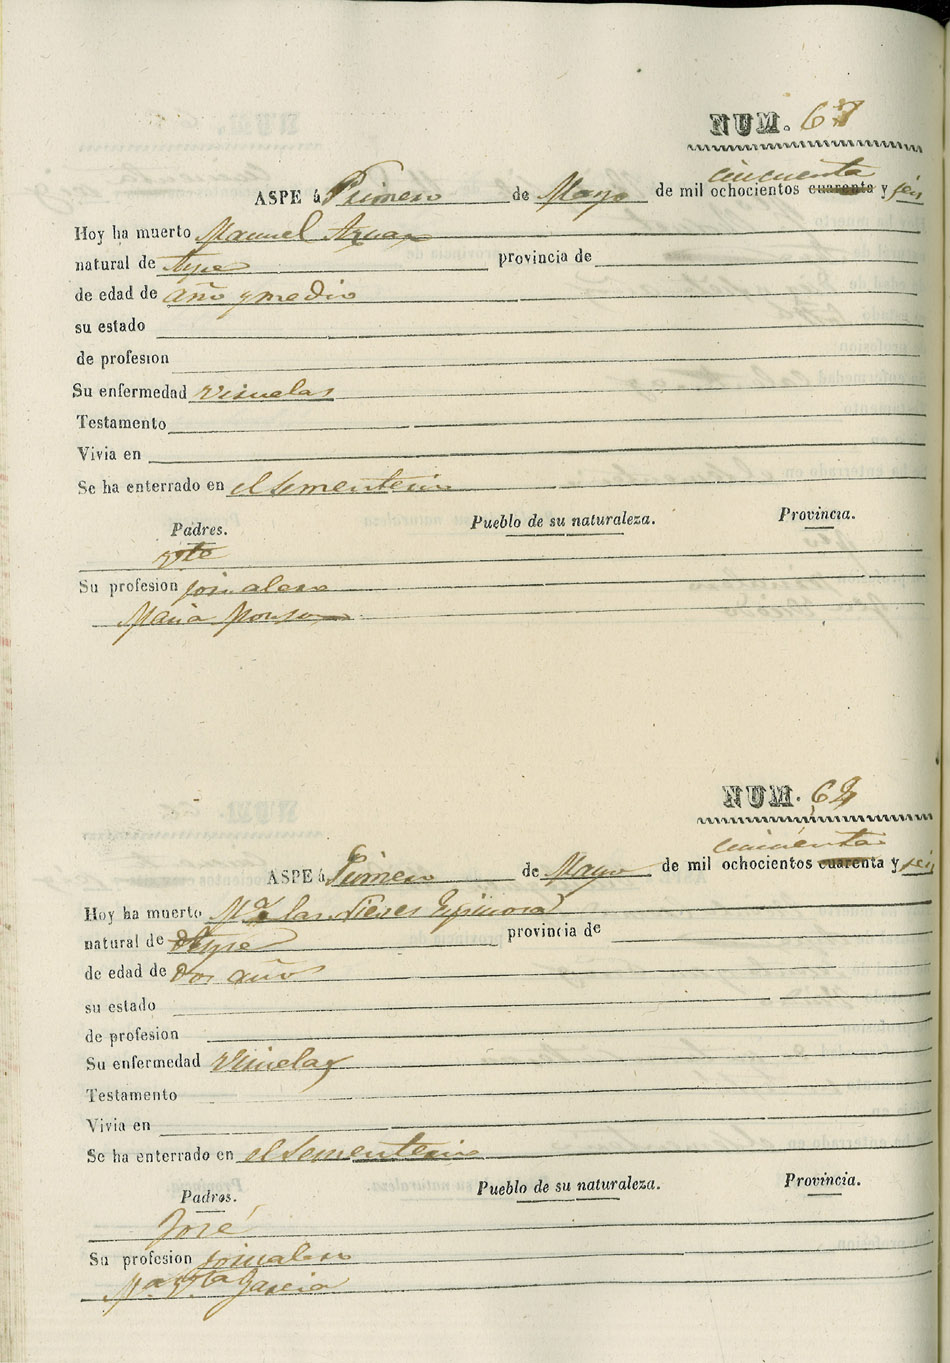 NUM. 67
cincuenta
ASPE á Primero de Mayo de mil ochocientos cuarenta y seis
Hoy ha muerto Manuel Aznar
natural de Aspe provincia de
de edad de año y medio
su estado
de profesion
Su enfermedad viruelas
Testamento
Vivia en
Se ha enterrado en el sementerio
Padres. Pueblo de su naturaleza. Provincia.
Su profesion jornalero
Maria
NUM. 62
cincuenta
ASPE á Primero de Mayo de mil ochocientos cuarenta y seis
Hoy ha muerto Mª de las Nieves Espinosa
natural de Aspe provincia de
de edad de dos años
su estado
de profesion
Su enfermedad Viruelas
Testamento
Vivia en
Se ha enterrado en el sementerio
Padres. Pueblo de su naturaleza. Provincia.
José
Su profesion jornalero
Garcia